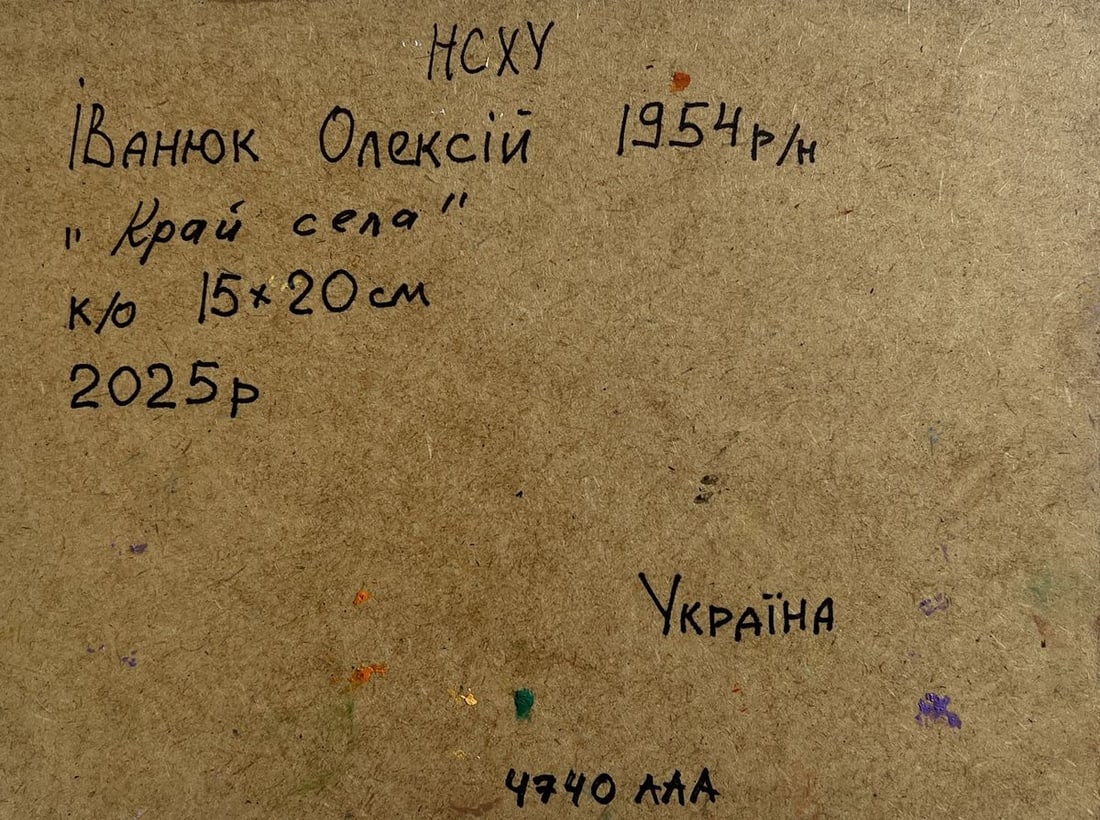 НСХУ
Іванюк Олексій 1954 р/н
"Край села"
к/о 15×20 см
2025р
Україна
4740 ААА